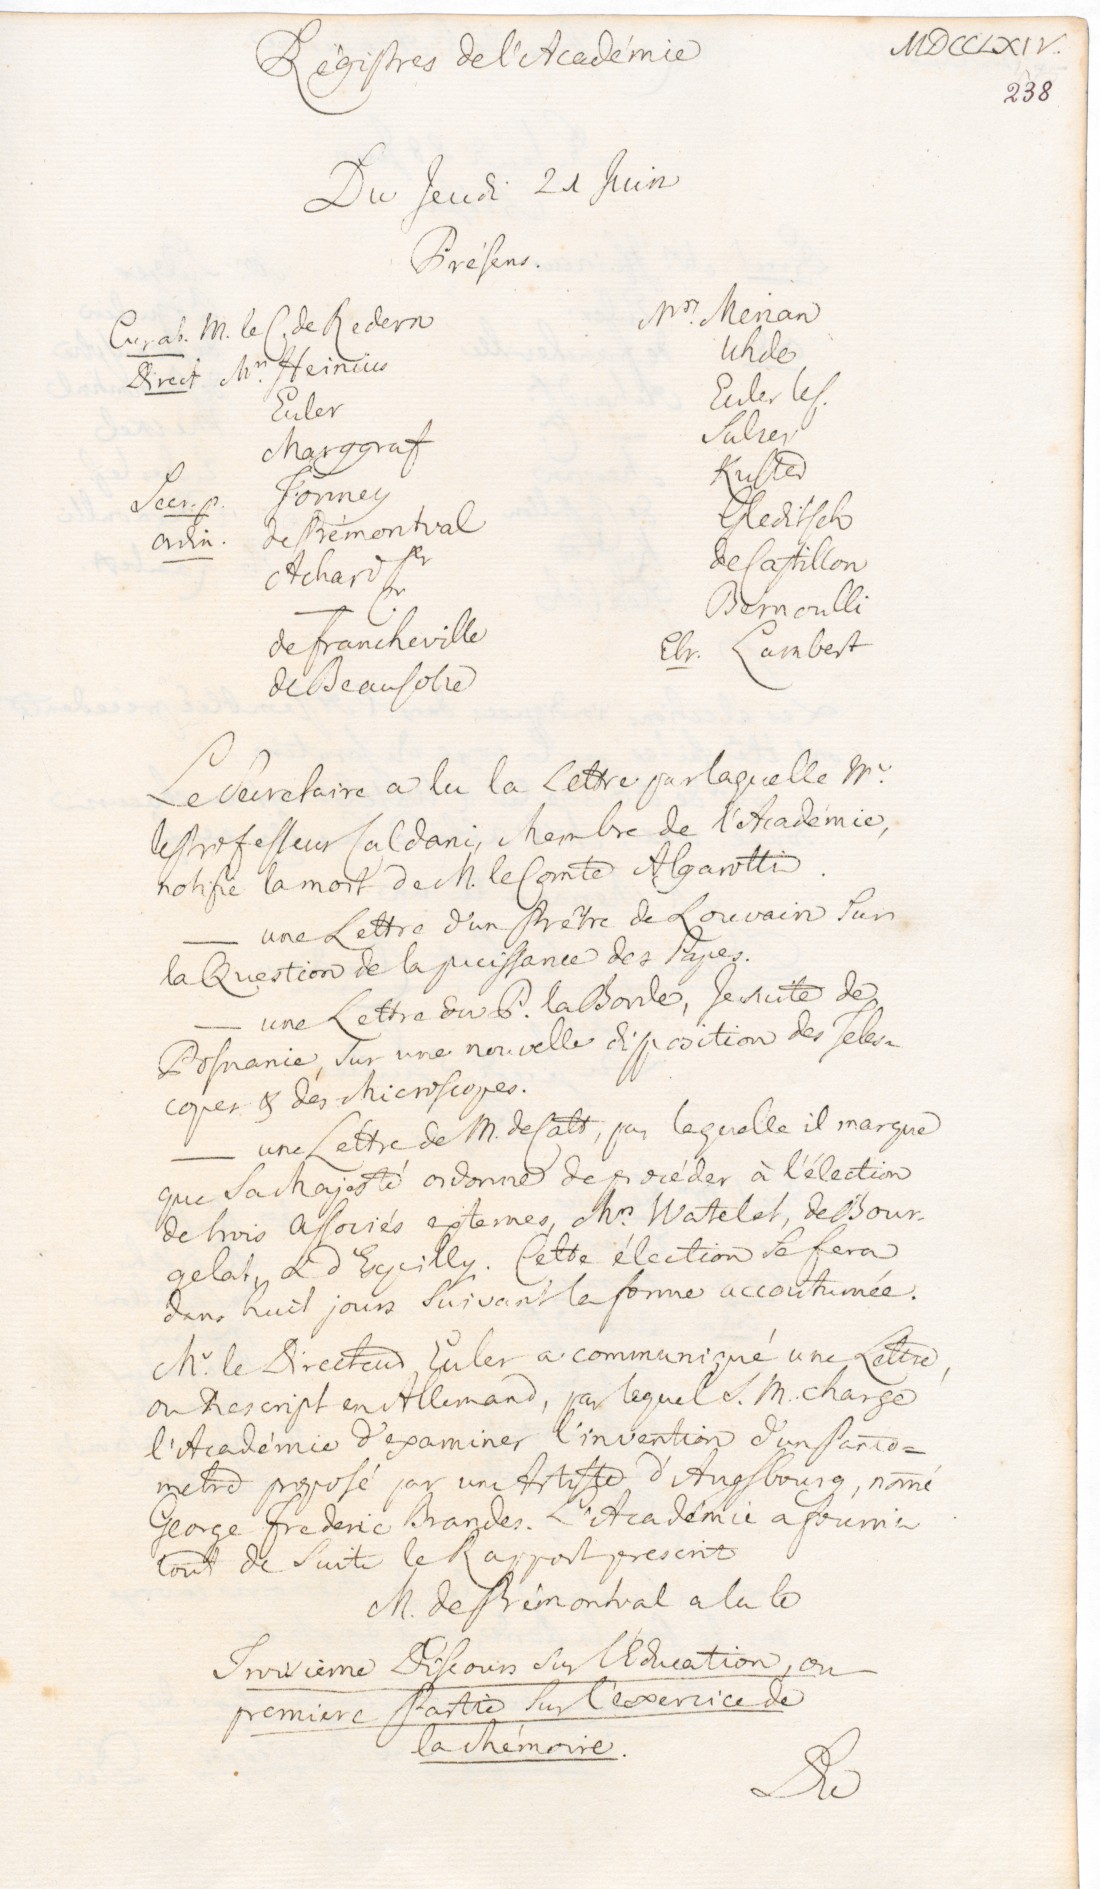 Régistres de l'Académie
MDCCLXIV.
238
Du Jeudi 21 Juin
Présens.
Curat. M. le C. de Redern
Direct Mrs. Heinius
Euler
Marggraf
Secr. p. Formey
ordin. de Prémontval
Achard Sr
— Jr.
de Francheville
de Beausobre
Mrs. Merian
Uhde
Euler le f.
Sulzer
Kuster
Gleditsch
de Castillon
Bernoulli
Etr. Lambert
Le Secretaire a lu la Lettre par laquelle Mr.
le Professeur Caldani, Membre de l'Académie,
notifie la mort de M. le Comte Algarotti.
— une Lettre d'un Prêtre de Louvain sur
la Question de la puissance des Papes.
— une Lettre du P. la Borde, Jesuite de
Posnanie, sur une nouvelle disposition des Teles-
copes & des Microscopes.
— une Lettre de M. de Catt, par laquelle il marque
que Sa Majesté ordonne de procéder à l'élection
de trois Associés externes, Mrs. Watelet, de Bour-
gelat, & d'Expilly. Cette élection se fera
dans huit jours suivant la forme accoutumée.
Mr. le Directeur Euler a communiqué une Lettre,
ou Rescript en Allemand, par lequel S. M. charge
l'Académie d'examiner l'invention d'un Panto=
metre proposé par un Artiste d'Augsbourg, nomé
George Frederic Brandes. L'Académie a fourni
tout de suite le Rapport prescrit
M. de Prémontval a lu le
Troisième Discours sur l'Education, ou
premiere Partie sur l'exercice de
la Mémoire.